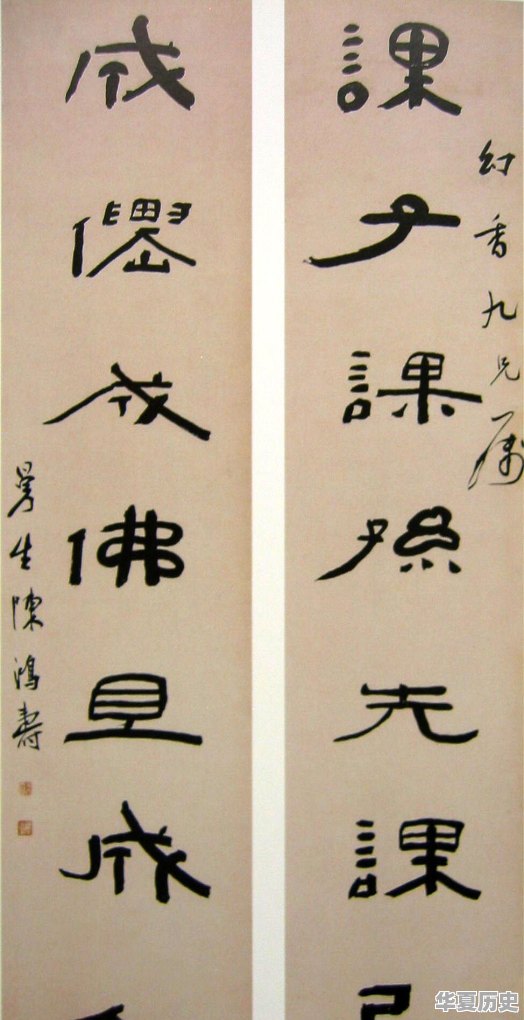 課子課孫先課
香九兄属
成僊成佛且成
曼生陳鴻壽
华夏历史